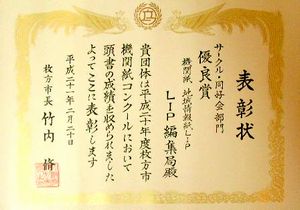 表彰状
サークル・同好会部門
優良賞
機関紙 地域情報紙LIP
LIP編集局殿
貴団体は平成二十年度枚方市
機関紙コンクールにおいて
頭書の成績を収められました
よってここに表彰します
平成二十一年二月二十日
枚方市長 竹内 脩